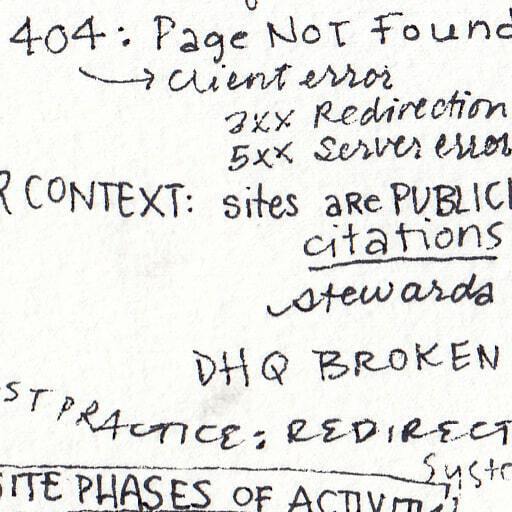 404: Page NOT Found
client error
3xx Redirection
5xx Server error
R CONTEXT: sites aRe PUBLIC
citations
stewards
DHQ BROKEN
ST PRACTICE: REDIRECT
Syste
SITE PHASES OF ACTIVITI